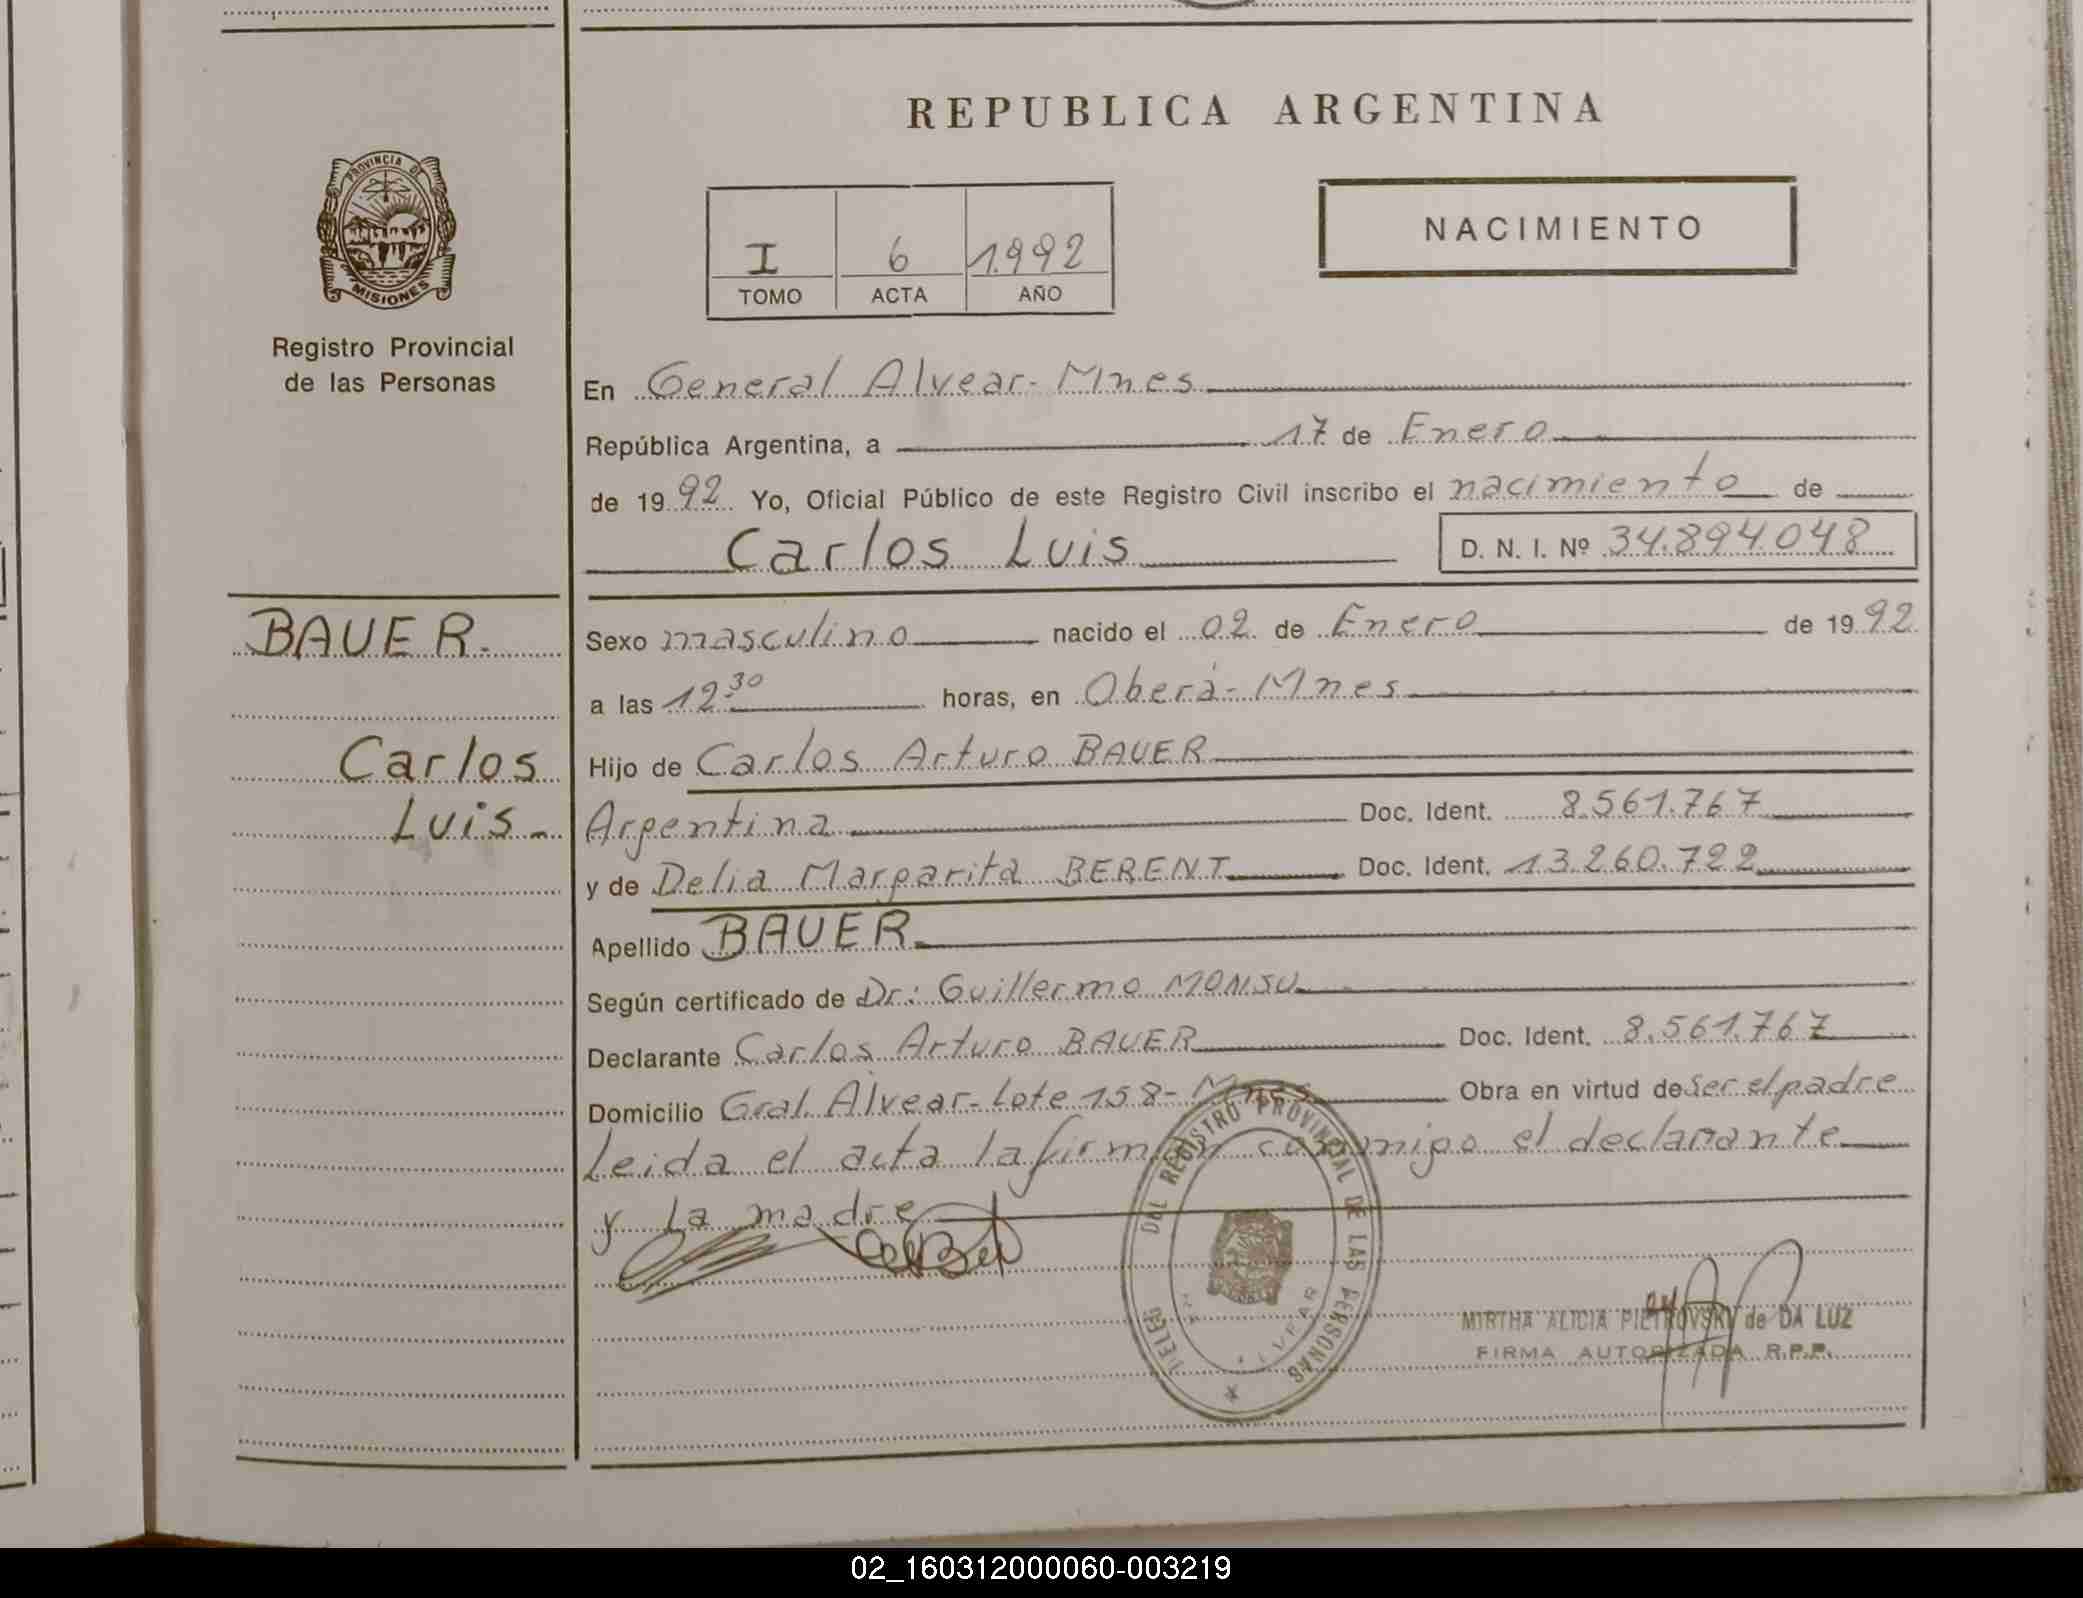 REPUBLICA ARGENTINA
PROVINCIA DE
MISIONES
Registro Provincial
de las Personas
NACIMIENTO
I 6 1.992
TOMO ACTA AÑO
En General Alvear - Mnes
República Argentina, a 17 de Enero
de 19 92 Yo, Oficial Público de este Registro Civil inscribo el nacimiento de
Carlos Luis D. N. I. Nº 34.894.048
BAUER.
Carlos
Luis
Sexo masculino nacido el 02 de Enero de 19 92
a las 12 30 horas, en Oberá - Mnes
Hijo de Carlos Arturo BAUER
Argentina Doc. Ident. 8.561.767
y de Delia Margarita BERENT Doc. Ident. 13.260.722
Apellido BAUER
Según certificado de Dr: Guillermo MONSU
Declarante Carlos Arturo BAUER Doc. Ident. 8.561.767
Domicilio Gral. Alvear - Lote 158 - Mnes Obra en virtud de ser el padre
Leida el acta la firman conmigo el declarante
y la madre
DELEG. DEL REGISTRO PROVINCIAL DE LAS PERSONAS
ALVEAR
MIRTHA ALICIA PIETROVSKI de DA LUZ
FIRMA AUTORIZADA R.P.P.
02_160312000060-003219